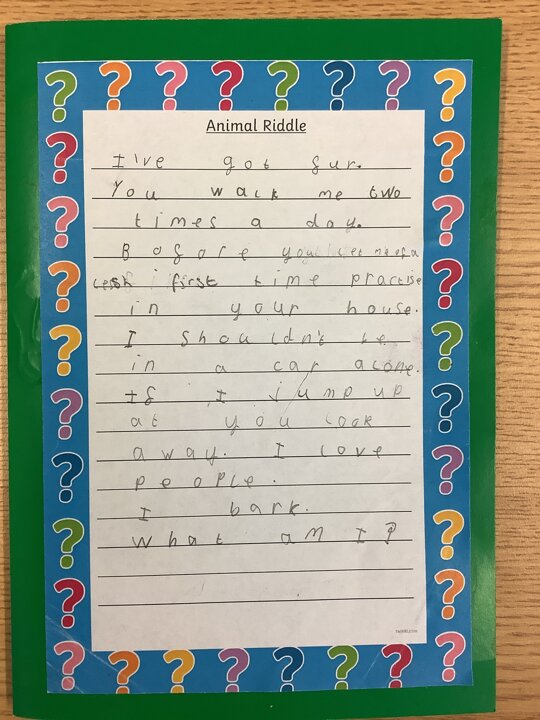 Animal Riddle
I've got fur.
You walk me two
times a day.
Bofore you let me of a
lesh first time practise
in your house.
I shouldn't be
in a car alone.
If I jump up
at you look
away. I love
people.
I bark.
What am I?
twinkl.com